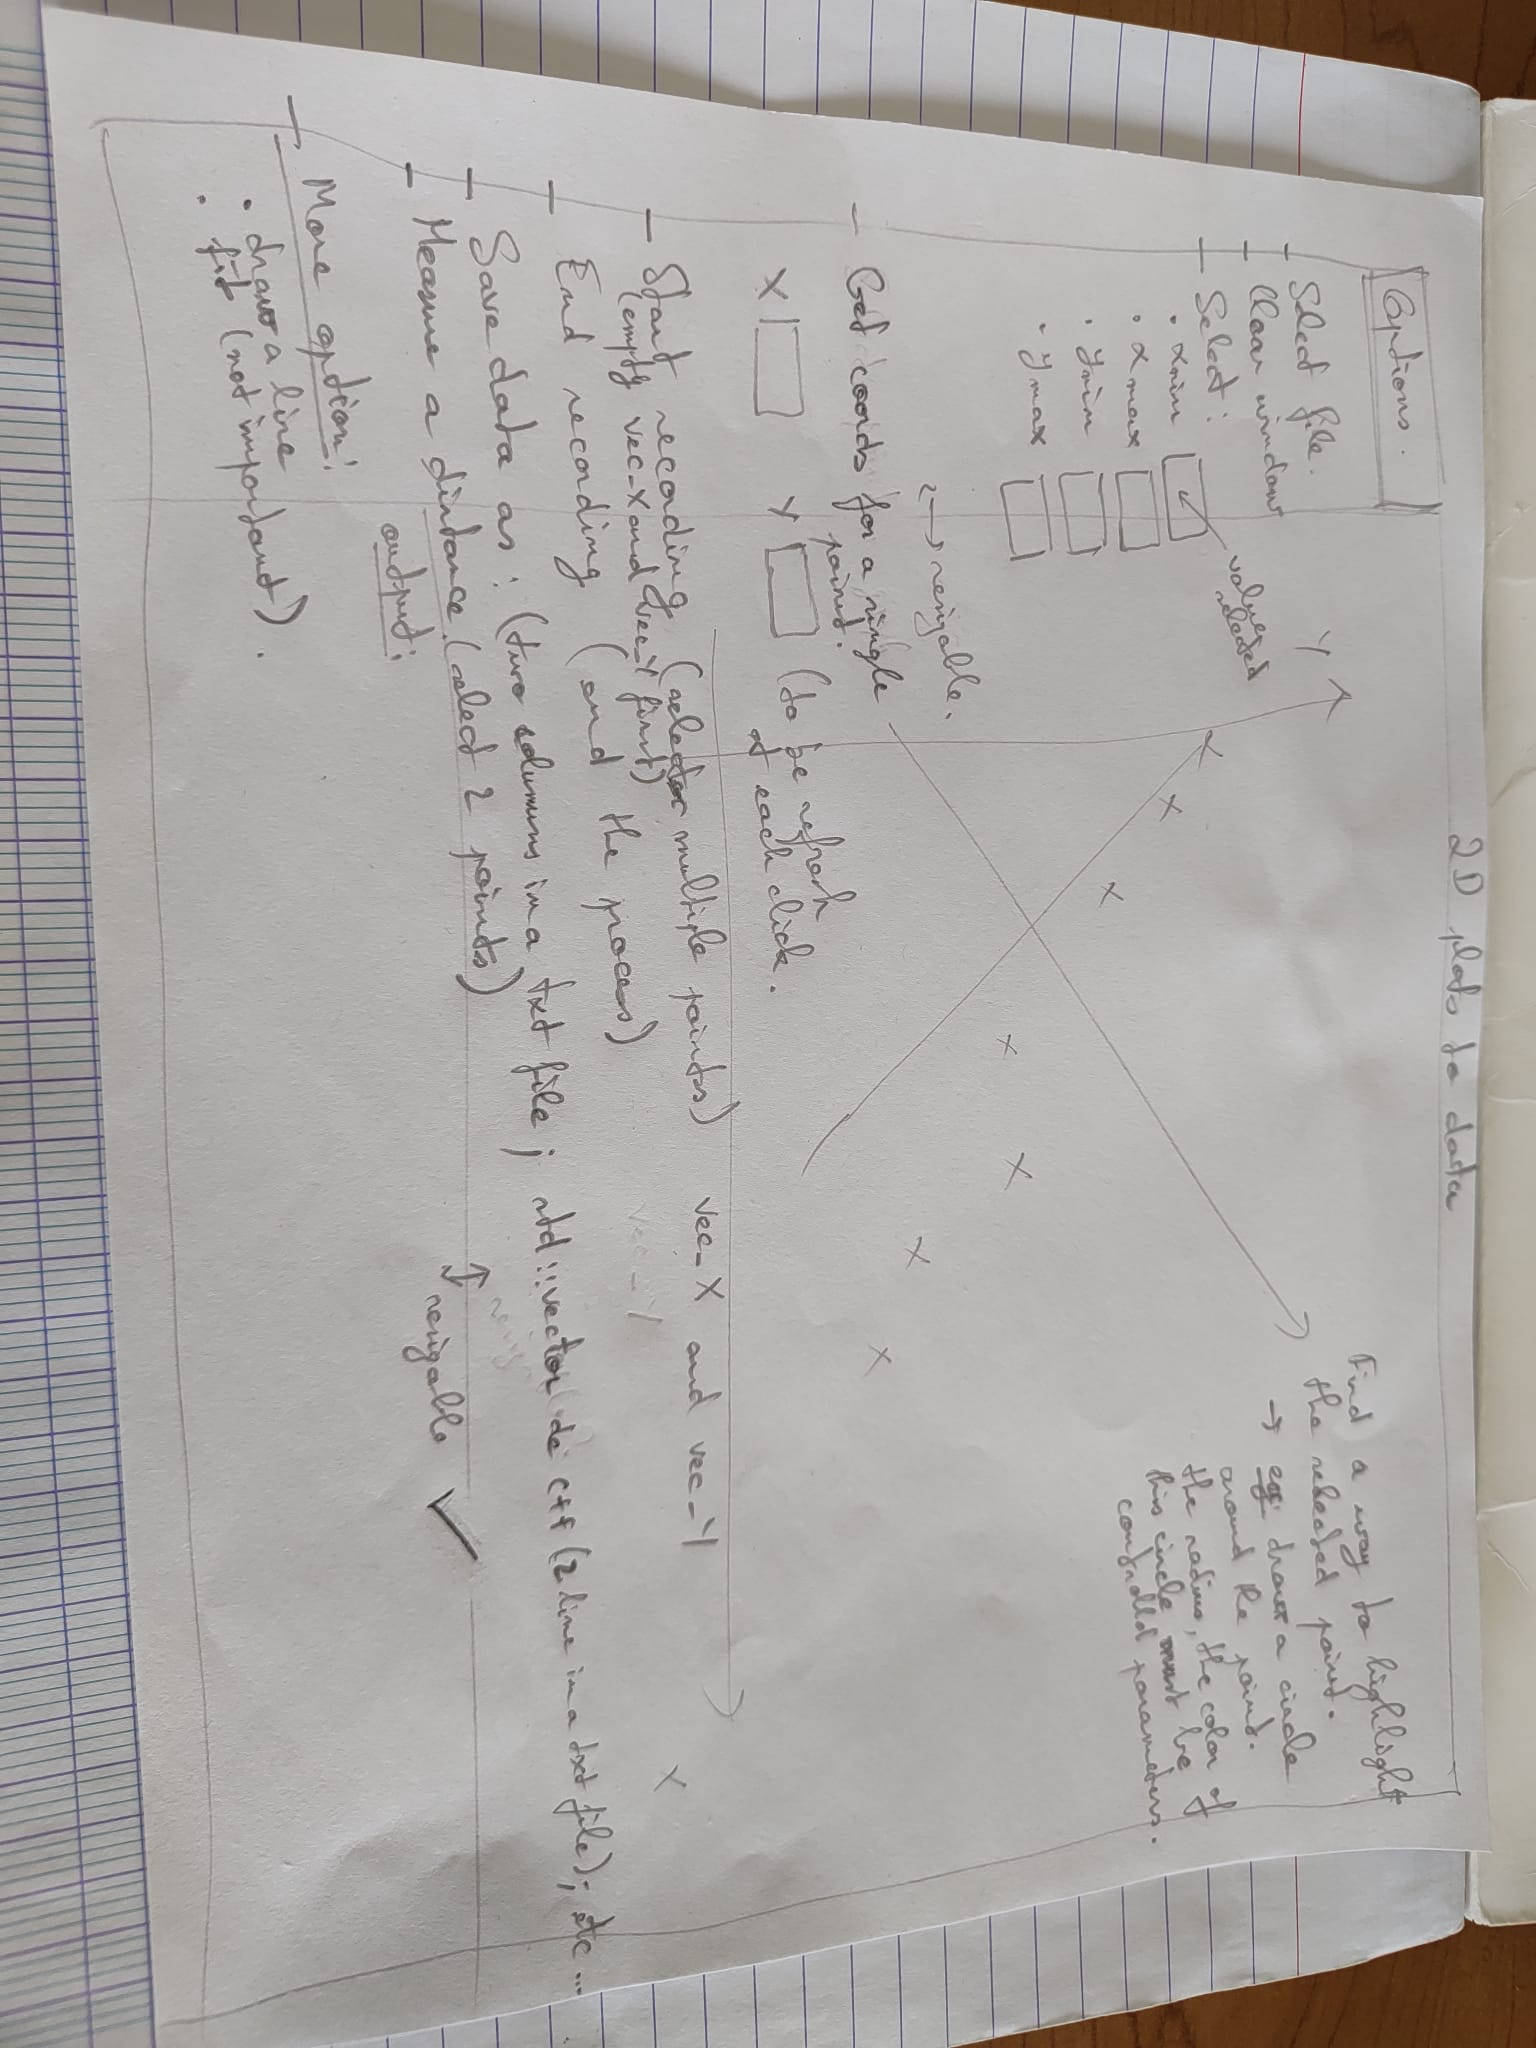 2D plots to data
Options.
Select file.
Clear window
Select :
• xmin
• x max
• ymin
• y max
values
selected
Y
Find a way to highlight
the selected point.
→ eg: draw a circle
around the point.
the radius, the color of
this circle must be
controlled parameters.
↔ resizable.
Get coords for a single
point.
X
Y
(to be refresh
at each click.
Start recording (select multiple points) vec_X and vec_Y
(empty vec_X and vec_Y first)
vec_Y
End recording (end the process)
Save data as : (two columns in a txt file ; std::vector de c++ (2 line in a txt file); etc ...
Measure a distance (select 2 points)
resizable
output :
More option :
• draw a line
• fit (not important).